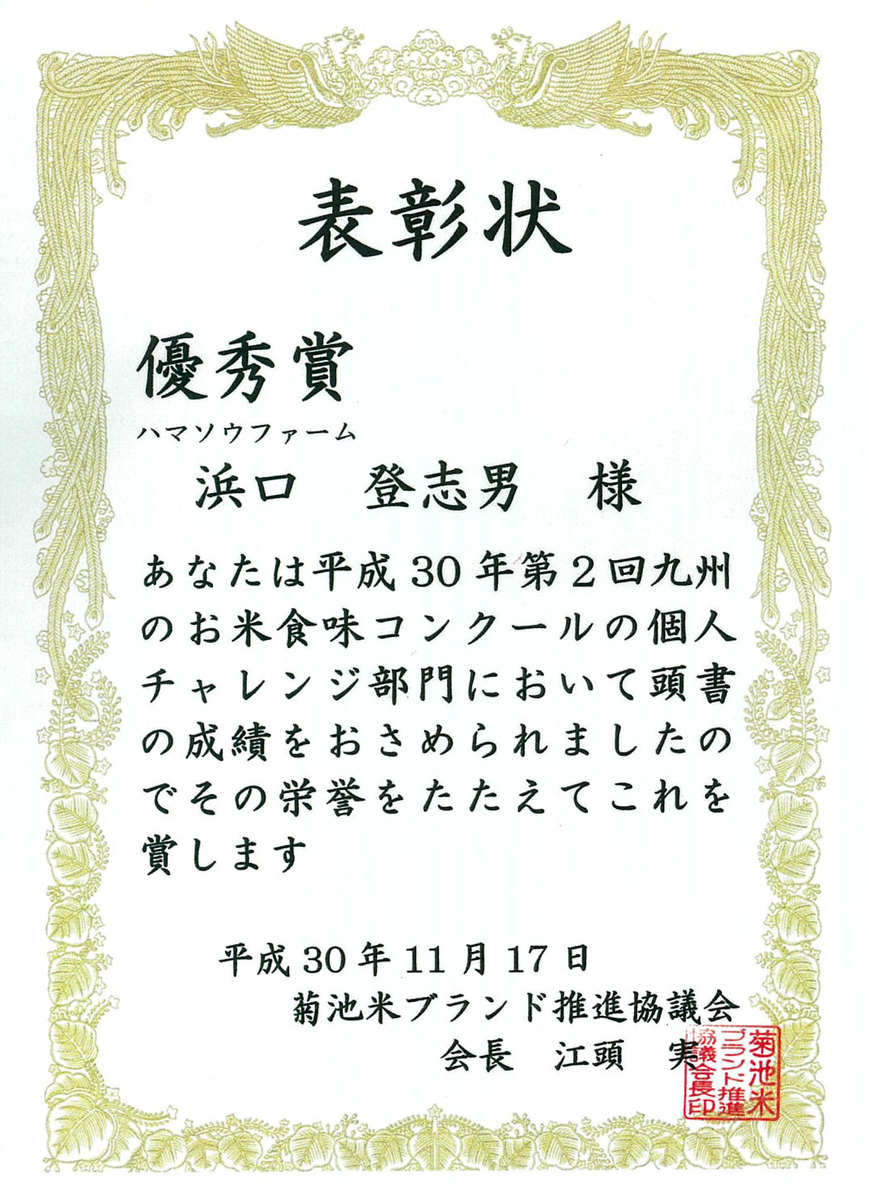 表彰状
優秀賞
ハマソウファーム
浜口 登志男 様
あなたは平成30年第2回九州
のお米食味コンクールの個人
チャレンジ部門において頭書
の成績をおさめられましたの
でその栄誉をたたえてこれを
賞します
平成30年11月17日
菊池米ブランド推進協議会
会長 江頭 実
菊池米
ブランド推進
協議会長印